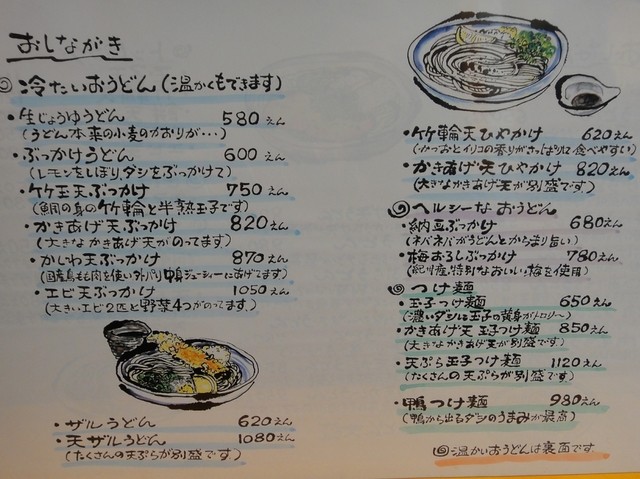 おしながき
◎冷たいおうどん(温かくもできます)
・生じょうゆうどん 580えん
(うどん本来の小麦のかおりが…)
・ぶっかけうどん 600えん
(レモンをしぼり、ダシをぶっかけて)
・竹玉天ぶっかけ 750えん
(鯛の身の竹輪と半熟玉子です)
・かきあげ天ぶっかけ 820えん
(大きなかきあげ天がのってます)
・かしわ天ぶっかけ 870えん
(国産鳥もも肉を使い外パリ中身ジューシーにあげてます)
・エビ天ぶっかけ 1050えん
(大きいエビ2匹と野菜4つがのってます)
・ザルうどん 620えん
・天ザルうどん 1080えん
(たくさんの天ぷらが別盛です)
・竹輪天ひやかけ 620えん
(かつおとイリコの香りがさっぱりに食べやすい)
・かきあげ天ひやかけ 820えん
(大きなかきあげ天が別盛です)
◎ヘルシーなおうどん
・納豆ぶっかけ 680えん
(ネバネバがうどんとからまり旨い)
・梅おろしぶっかけ 780えん
(紀州産、特別なおいしい梅を使用)
◎つけ麺
・玉子つけ麺 650えん
(濃いダシに玉子の黄身がトロリ〜)
・かきあげ天玉子つけ麺 850えん
(大きなかきあげ天が別盛です)
・天ぷら玉子つけ麺 1120えん
(たくさんの天ぷらが別盛です)
・鴨つけ麺 980えん
(鴨から出るダシのうまみが最高)
◎温かいおうどんは裏面です